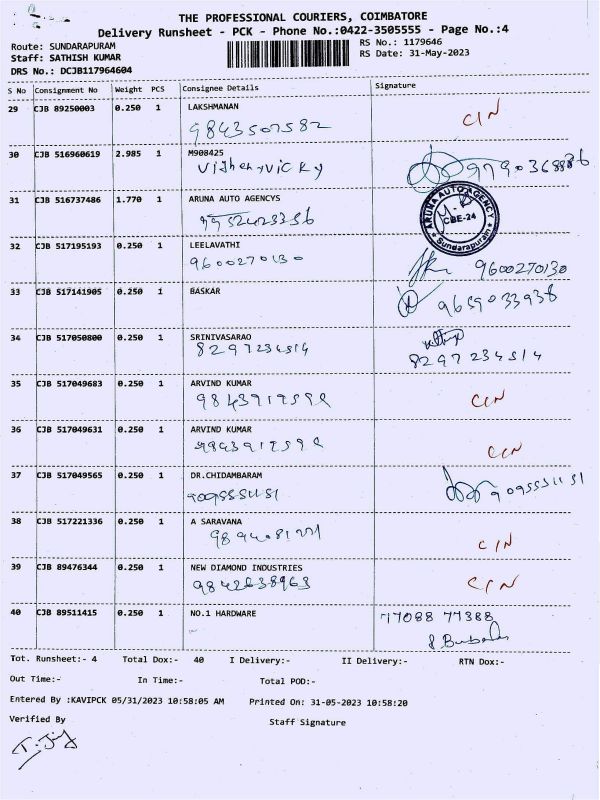 THE PROFESSIONAL COURIERS, COIMBATORE
Delivery Runsheet - PCK - Phone No.:0422-3505555 - Page No.:4
Route: SUNDARAPURAM RS No.: 1179646
Staff: SATHISH KUMAR RS Date: 31-May-2023
DRS No.: DCJB117964604
S No Consignment No Weight PCS Consignee Details Signature
29 CJB 89250003 0.250 1 LAKSHMANAN
9843507582 CIN
30 CJB 516960619 2.985 1 M908425
9790368886
31 CJB 516737486 1.770 1 ARUNA AUTO AGENCYS
ARUNA AUTO AGENCY CBE-24 Sundarapuram
32 CJB 517195193 0.250 1 LEELAVATHI
9600270130 9600270130
33 CJB 517141905 0.250 1 BASKAR
9659033938
34 CJB 517050800 0.250 1 SRINIVASARAO
8297234514 8297234514
35 CJB 517049683 0.250 1 ARVIND KUMAR
CIN
36 CJB 517049631 0.250 1 ARVIND KUMAR
CIN
37 CJB 517049565 0.250 1 DR.CHIDAMBARAM
9095551151 9095551151
38 CJB 517221336 0.250 1 A SARAVANA
CIN
39 CJB 89476344 0.250 1 NEW DIAMOND INDUSTRIES
CIN
40 CJB 89511415 0.250 1 NO.1 HARDWARE 77088 77388
Tot. Runsheet:- 4 Total Dox:- 40 I Delivery:- II Delivery:- RTN Dox:-
Out Time:- In Time:- Total POD:-
Entered By :KAVIPCK 05/31/2023 10:58:05 AM Printed On: 31-05-2023 10:58:20
Verified By Staff Signature